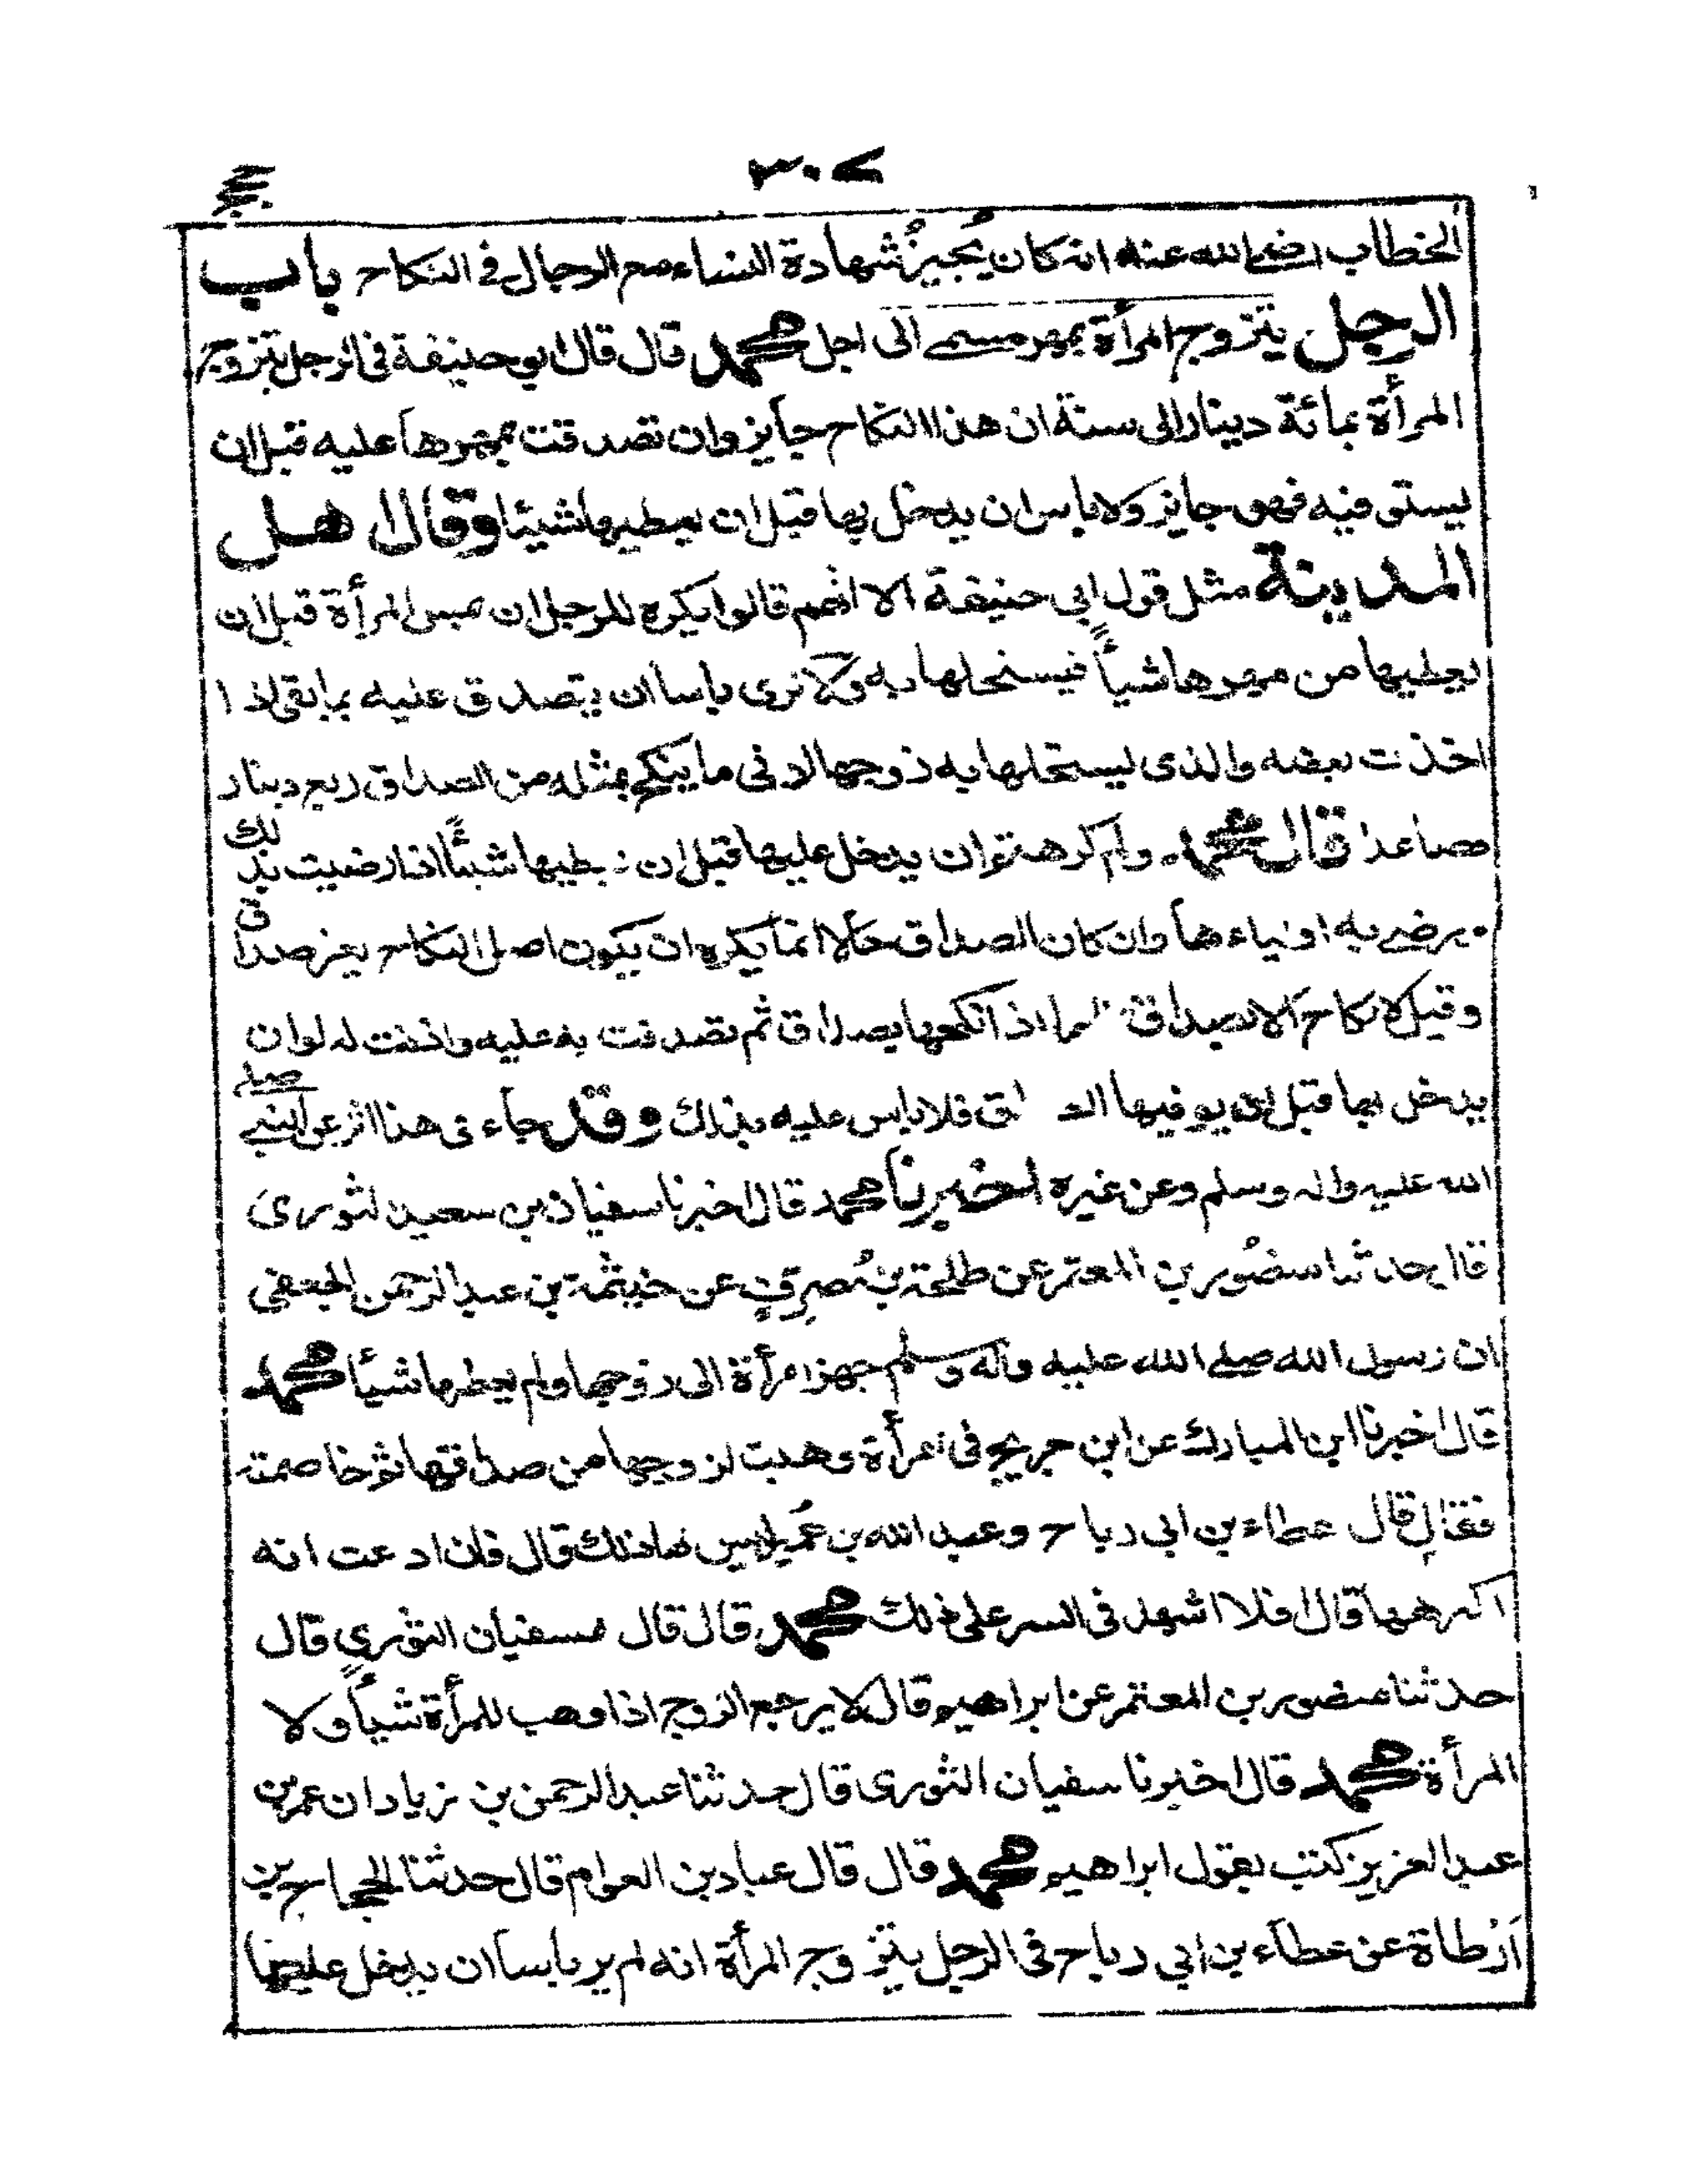 ٣٠٧
الخطاب رضي الله عنه انه كان يُجيزُ شهادة النساء مع الرجال في النكاح باب
الرجل يتزوج المرأة بمهر مسمى الى اجل محمد قال قال ابو حنيفة فى الرجل يتزوج
المرأة بمائة دينار الى سنة ان هذا النكاح جايز وان تصدقت بمهرها عليه قبل ان
يستوفيه فهو جايز ولا باس ان يدخل بها قبل ان يعطيها شيئا وقال اهل
المدينة مثل قول ابي حنيفة الا انهم قالوا يكره للرجل ان يمس المرأة قبل ان
يعطيها من مهرها شيأً فيستحلها به ولا نرى باسا ان يتصدق عليه بما بقى اذا
اخذت بعضه والذى يستحلها به زوجها الادنى ما ينكح بمثله من الصداق ربع دينار
فصاعدا قال محمد ولم كرهتم ان يدخل عليها قبل ان يعطيها شيئًا اذا رضيت بذلك
ويرضى به اولياءها وان كان الصداق حالا انما يكره ان يكون اصل النكاح بغير صداق
وقيل لا نكاح الا بصداق فاما اذا انكحها بصداق ثم تصدقت به عليه واذنت له لو ان
يدخل بها قبل ان يوفيها الصداق فلا باس عليه بذلك وقد جاء فى هذا اثر عن النبي صلى
الله عليه واله وسلم وعن غيره اخبرنا محمد قال اخبرنا سفيان بن سعيد الثورى
قال حدثنا منصُور بن المعتمر عن طلحة بن مُصرِّفٍ عن خيثمة بن عبد الرحمن الجعفى
ان رسول الله صلى الله عليه وآله وسلم جهز امرأة الى زوجها ولم يعطها شيأ محمد
قال اخبرنا ابن المبارك عن ابن جريج فى امرأة وهبت لزوجها من صداقها ثم خاصمته
فقال قال عطاء بن ابى رباح وعبد الله بن عُمير ليس لها ذلك قال فان ادعت انه
اكرهها قال افلا اشهد فى السر على ذلك محمد قال قال سفيان الثوري قال
حدثنا منصور بن المعتمر عن ابراهيم قال لا يرجع الزوج اذا وهب للمرأة شيأً ولا
المرأة محمد قال اخبرنا سفيان الثورى قال حدثنا عبد الرحمن بن زياد ان عمر بن
عبد العزيز كتب بقول ابراهيم محمد قال قال عباد بن العوام قال حدثنا الحجاج بن
اَرْطاة عن عطاء بن ابي رباح فى الرجل يتزوج المرأة انه لم ير باساً ان يدخل عليها